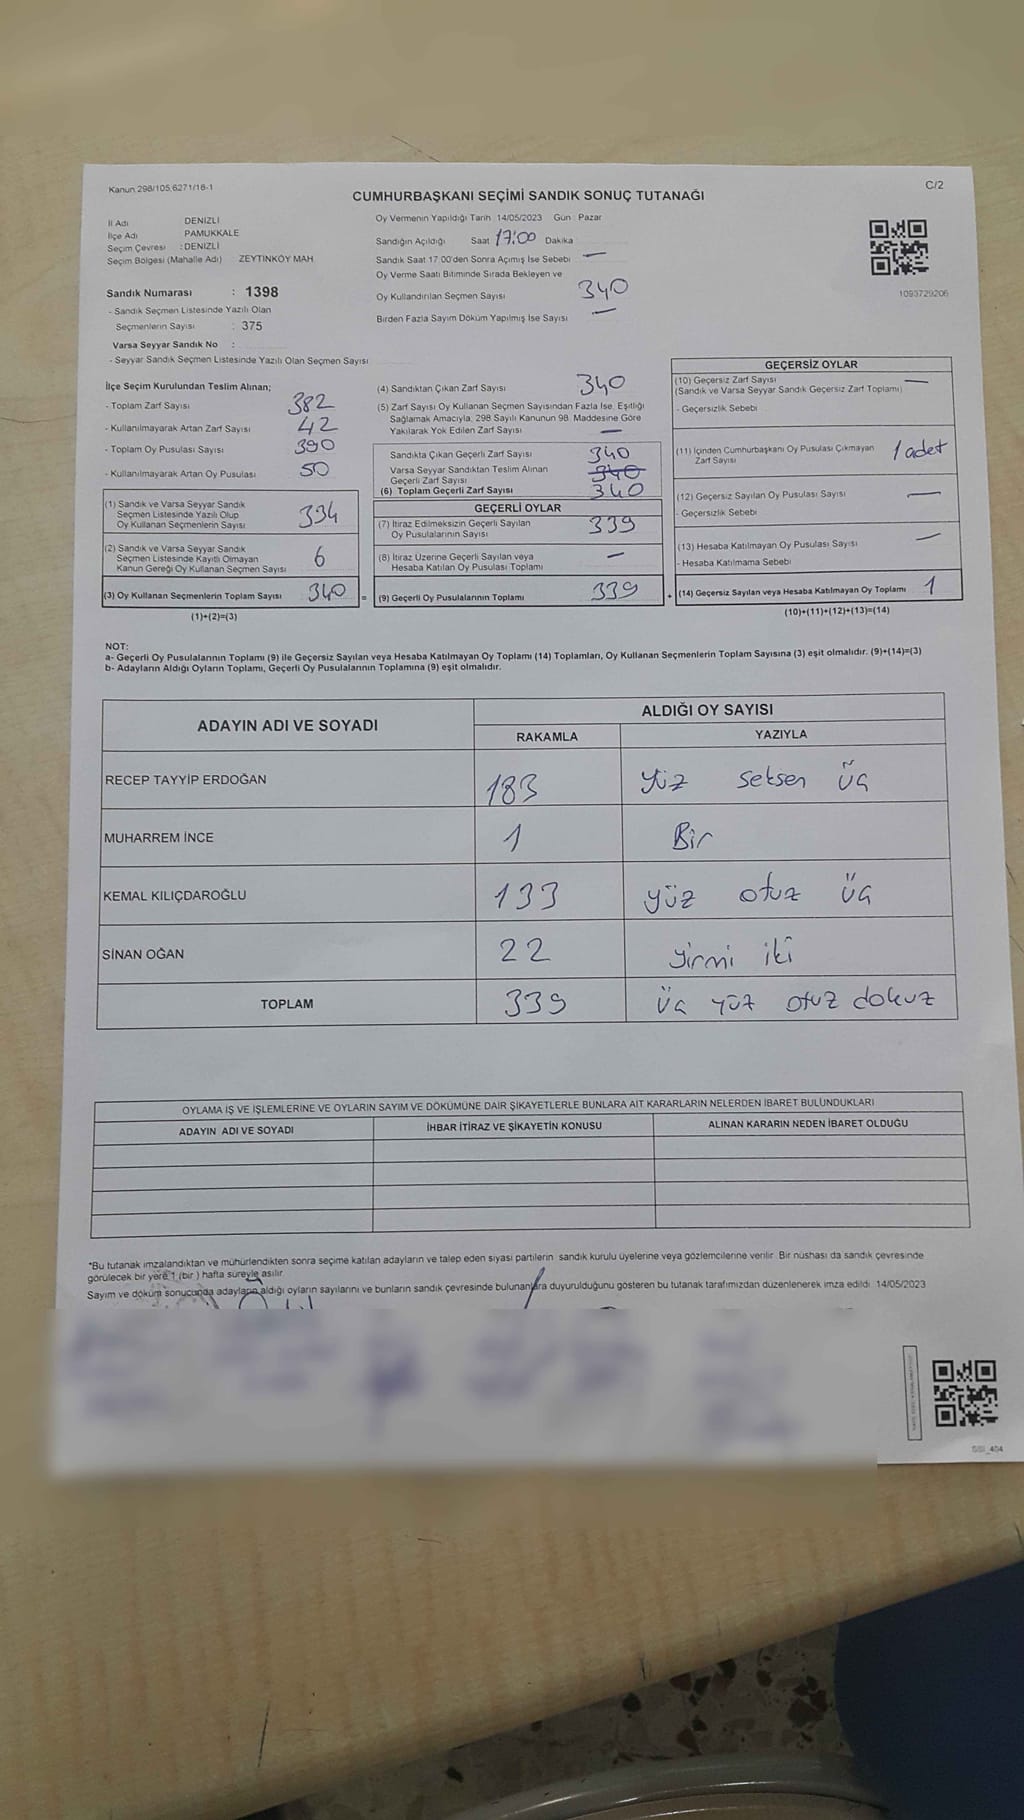 Kanun 298/105,6271/18-1
C/2
CUMHURBAŞKANI SEÇİMİ SANDIK SONUÇ TUTANAĞI
İl Adı DENİZLİ
İlçe Adı PAMUKKALE
Seçim Çevresi : DENİZLİ
Seçim Bölgesi (Mahalle Adı) ZEYTİNKÖY MAH
Sandık Numarası : 1398
- Sandık Seçmen Listesinde Yazılı Olan
Seçmenlerin Sayısı : 375
Varsa Seyyar Sandık No :
- Seyyar Sandık Seçmen Listesinde Yazılı Olan Seçmen Sayısı
Oy Vermenin Yapıldığı Tarih 14/05/2023 Gün : Pazar
Sandığın Açıldığı Saat 17:00 Dakika
Sandık Saat 17.00'den Sonra Açımış İse Sebebi —
Oy Verme Saati Bitiminde Sırada Bekleyen ve
Oy Kullandırılan Seçmen Sayısı 340
Birden Fazla Sayım Döküm Yapılmış İse Sayısı —
1093729206
İlçe Seçim Kurulundan Teslim Alınan;
- Toplam Zarf Sayısı 382
- Kullanılmayarak Artan Zarf Sayısı 42
- Toplam Oy Pusulası Sayısı 390
- Kullanılmayarak Artan Oy Pusulası 50
(1) Sandık ve Varsa Seyyar Sandık
Seçmen Listesinde Yazılı Olup
Oy Kullanan Seçmenlerin Sayısı 334
(2) Sandık ve Varsa Seyyar Sandık
Seçmen Listesinde Kayıtlı Olmayan
Kanun Gereği Oy Kullanan Seçmen Sayısı 6
(3) Oy Kullanan Seçmenlerin Toplam Sayısı 340 =
(1)+(2)=(3)
(4) Sandıktan Çıkan Zarf Sayısı 340
(5) Zarf Sayısı Oy Kullanan Seçmen Sayısından Fazla İse, Eşitliği
Sağlamak Amacıyla, 298 Sayılı Kanunun 98. Maddesine Göre
Yakılarak Yok Edilen Zarf Sayısı —
Sandıkta Çıkan Geçerli Zarf Sayısı 340
Varsa Seyyar Sandıktan Teslim Alınan
Geçerli Zarf Sayısı 340
(6) Toplam Geçerli Zarf Sayısı 340
GEÇERLİ OYLAR
(7) İtiraz Edilmeksizin Geçerli Sayılan
Oy Pusulalarının Sayısı 339
(8) İtiraz Üzerine Geçerli Sayılan veya
Hesaba Katılan Oy Pusulası Toplamı —
(9) Geçerli Oy Pusulalarının Toplamı 339 +
GEÇERSİZ OYLAR
(10) Geçersiz Zarf Sayısı —
(Sandık ve Varsa Seyyar Sandık Geçersiz Zarf Toplamı)
- Geçersizlik Sebebi
(11) İçinden Cumhurbaşkanı Oy Pusulası Çıkmayan
Zarf Sayısı 1 adet
(12) Geçersiz Sayılan Oy Pusulası Sayısı —
- Geçersizlik Sebebi
(13) Hesaba Katılmayan Oy Pusulası Sayısı —
- Hesaba Katılmama Sebebi
(14) Geçersiz Sayılan veya Hesaba Katılmayan Oy Toplamı 1
(10)+(11)+(12)+(13)=(14)
NOT:
a- Geçerli Oy Pusulalarının Toplamı (9) ile Geçersiz Sayılan veya Hesaba Katılmayan Oy Toplamı (14) Toplamları, Oy Kullanan Seçmenlerin Toplam Sayısına (3) eşit olmalıdır. (9)+(14)=(3)
b- Adayların Aldığı Oyların Toplamı, Geçerli Oy Pusulalarının Toplamına (9) eşit olmalıdır.
ADAYIN ADI VE SOYADI
ALDIĞI OY SAYISI
RAKAMLA YAZIYLA
RECEP TAYYİP ERDOĞAN 183 yüz seksen üç
MUHARREM İNCE 1 Bir
KEMAL KILIÇDAROĞLU 133 yüz otuz üç
SİNAN OĞAN 22 yirmi iki
TOPLAM 339 üç yüz otuz dokuz
OYLAMA İŞ VE İŞLEMLERİNE VE OYLARIN SAYIM VE DÖKÜMÜNE DAİR ŞİKAYETLERLE BUNLARA AİT KARARLARIN NELERDEN İBARET BULUNDUKLARI
ADAYIN ADI VE SOYADI İHBAR İTİRAZ VE ŞİKAYETİN KONUSU ALINAN KARARIN NEDEN İBARET OLDUĞU
*Bu tutanak imzalandıktan ve mühürlendikten sonra seçime katılan adayların ve talep eden siyasi partilerin sandık kurulu üyelerine veya gözlemcilerine verilir. Bir nüshası da sandık çevresinde
görülecek bir yere 1 (bir) hafta süreyle asılır
Sayım ve döküm sonucunda adayların aldığı oyların sayılarını ve bunların sandık çevresinde bulunanlara duyurulduğunu gösteren bu tutanak tarafımızdan düzenlenerek imza edildi. 14/05/2023
SSI_404